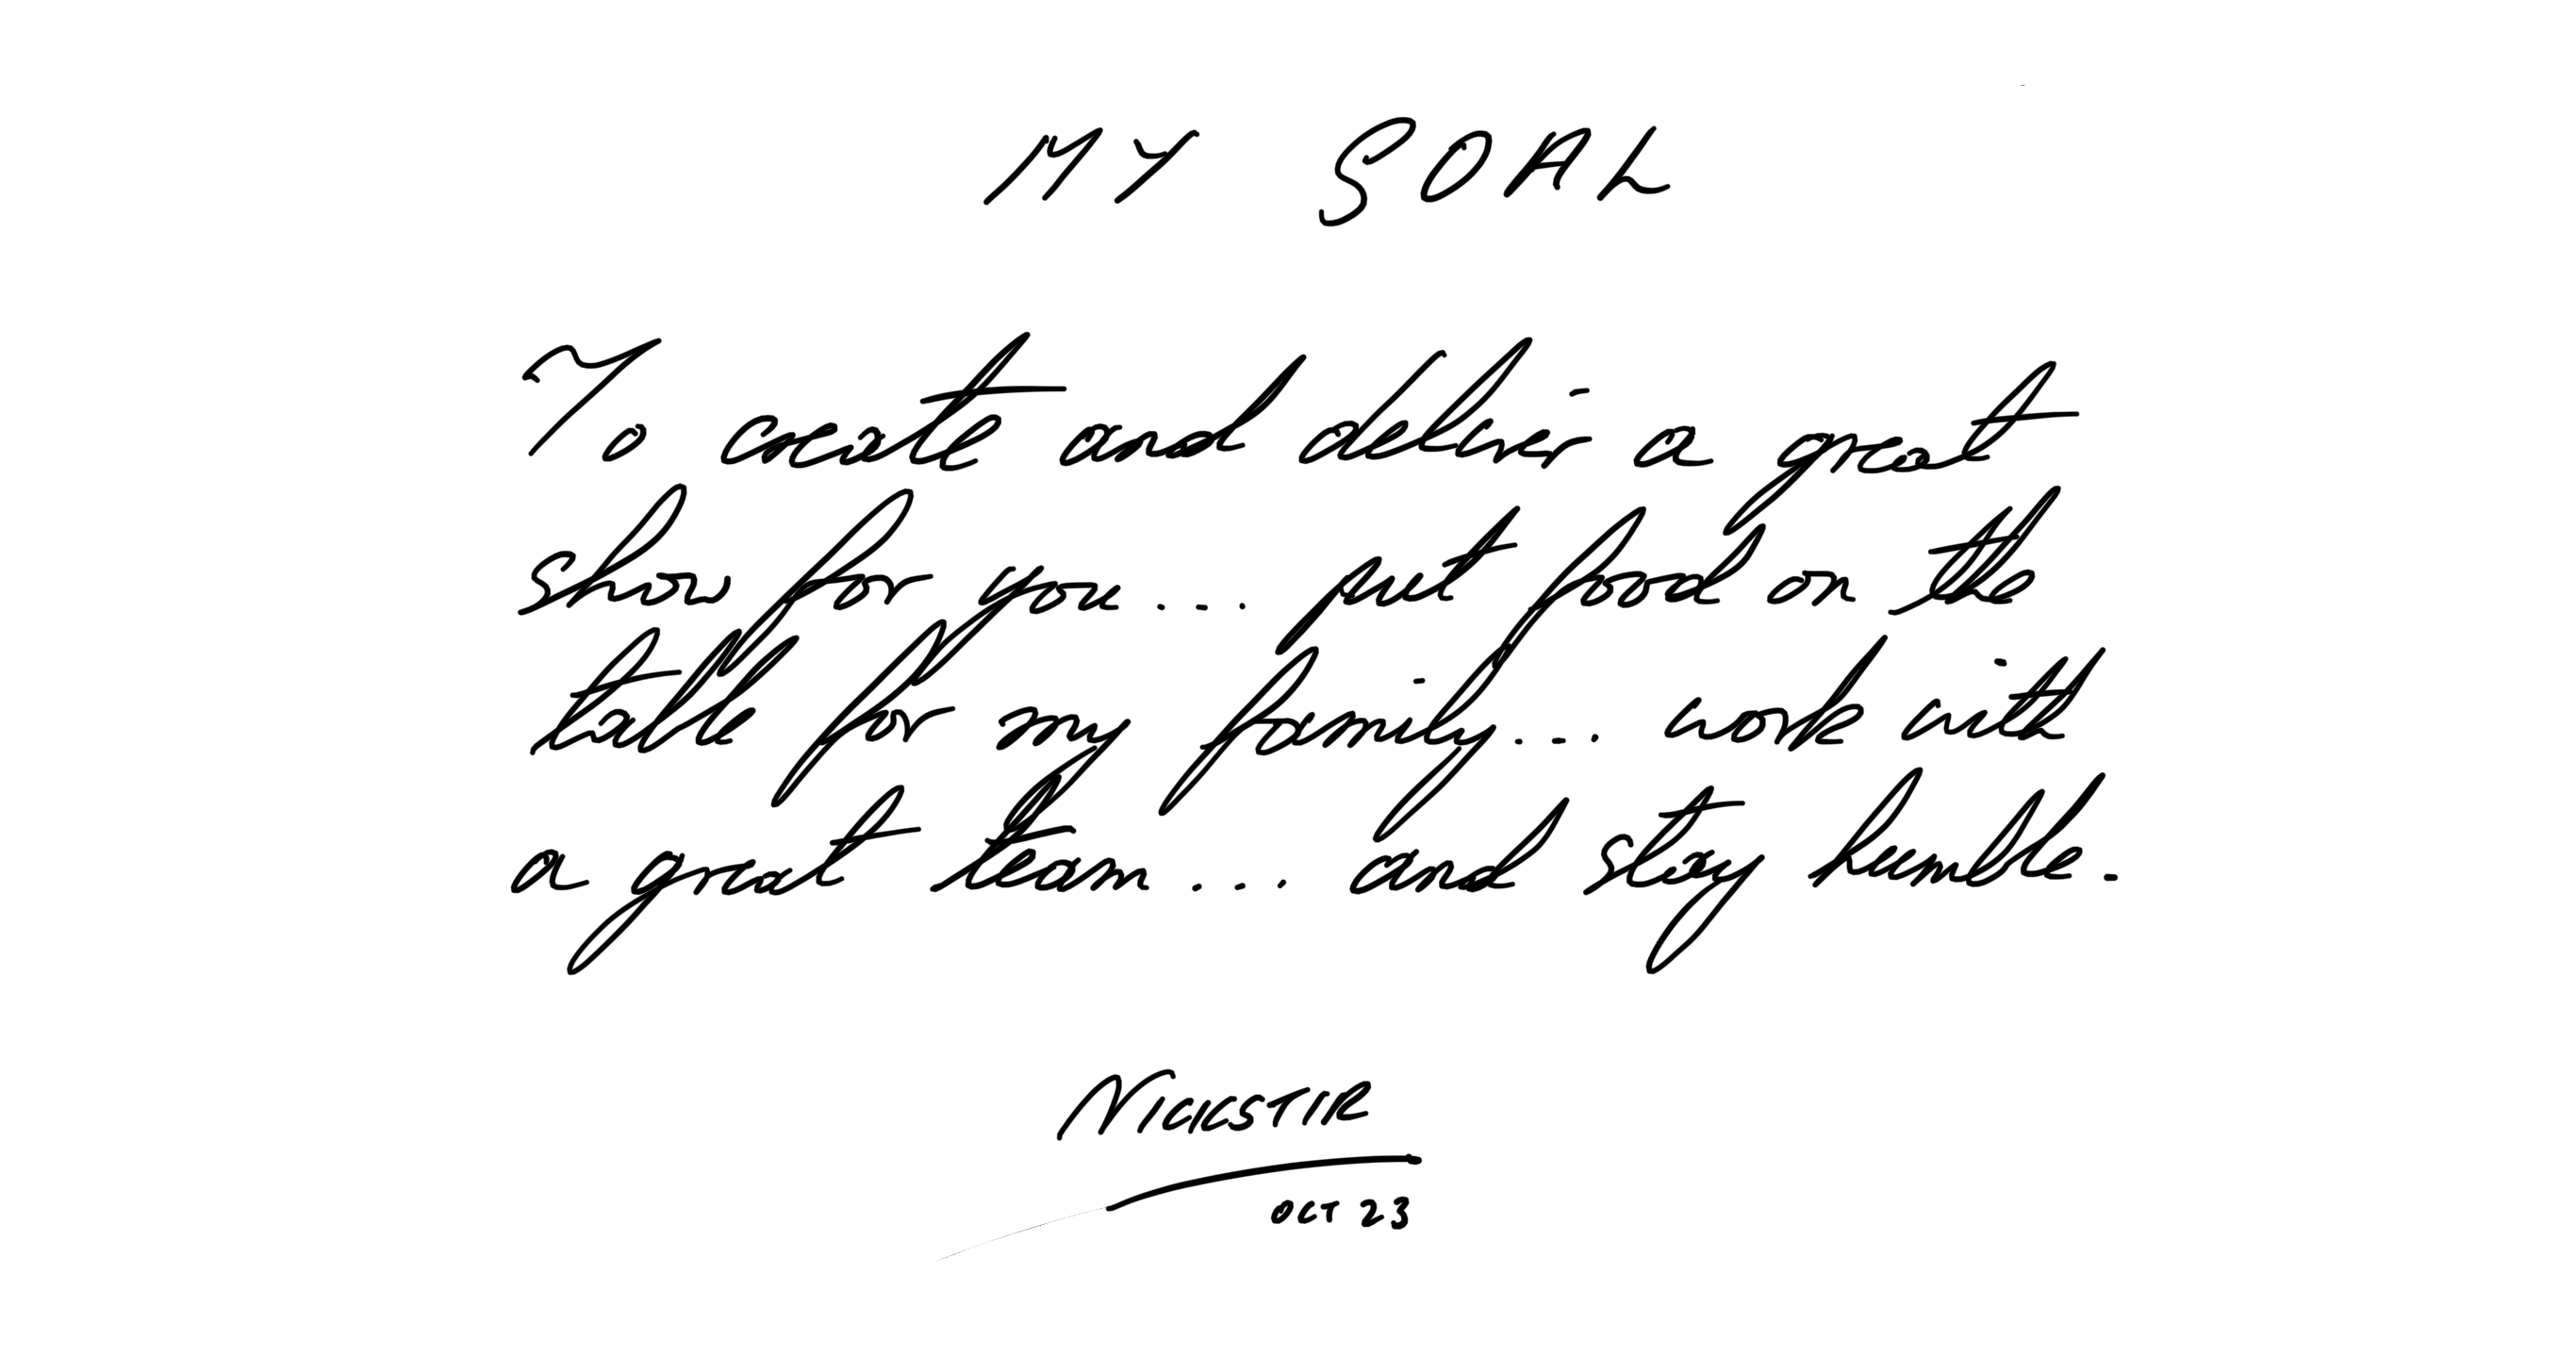 MY GOAL
To create and deliver a great
show for you... put food on the
table for my family... work with
a great team... and stay humble.
NICKSTIR
OCT 23